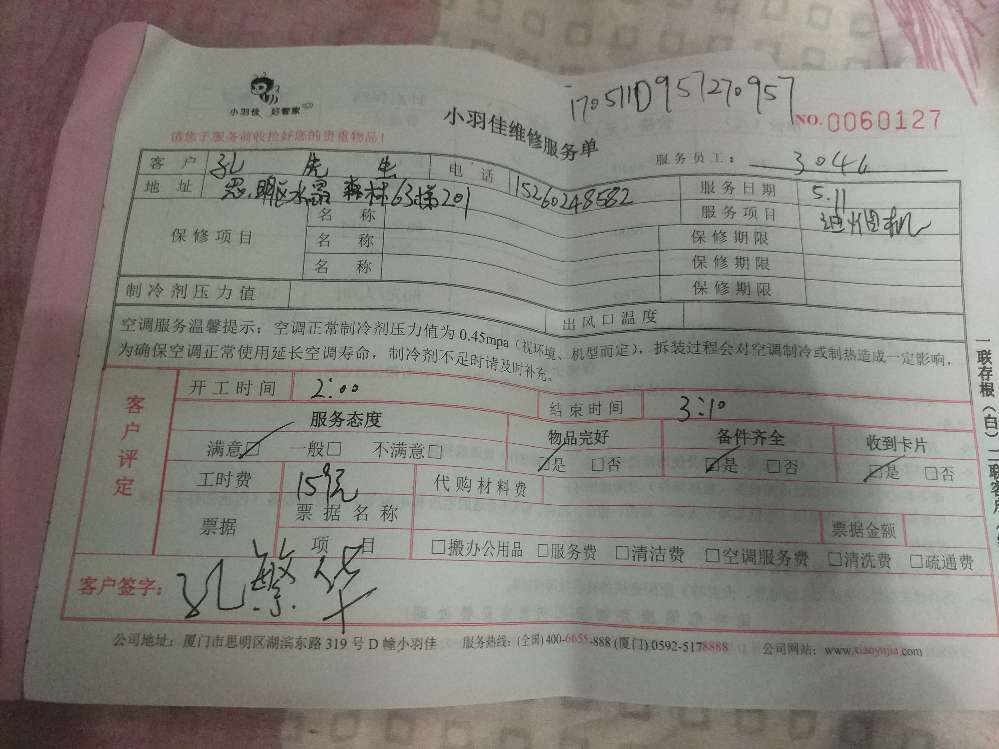 170511D957270957
小羽佳 好管家
小羽佳维修服务单
NO. 0060127
请您于服务前收拾好您的贵重物品！
服务员工： 3046
客户 孔先生 电话 15260248582 服务日期 5.11
地址 思明区水晶森林63梯201 服务项目 油烟机
保修项目 名称 保修期限
名称 保修期限
名称 保修期限
制冷剂压力值 出风口温度
空调服务温馨提示：空调正常制冷剂压力值为0.45mpa（视环境、机型而定），拆装过程会对空调制冷或制热造成一定影响，
为确保空调正常使用延长空调寿命，制冷剂不足时请及时补充。
客户评定
开工时间 2:00 结束时间 3:10
服务态度 物品完好 备件齐全 收到卡片
满意□ 一般□ 不满意□ □是 □否 □是 □否 □是 □否
工时费 159元 代购材料费
票据 票据名称 票据金额
项目 □搬办公用品 □服务费 □清洁费 □空调服务费 □清洗费 □疏通费
客户签字： 孔繁华
公司地址：厦门市思明区湖滨东路 319 号 D 幢小羽佳 服务热线：(全国) 400-6655-888 (厦门) 0592-5178888 公司网站：www.xiaoyujia.com
一联存根（白）二联客户